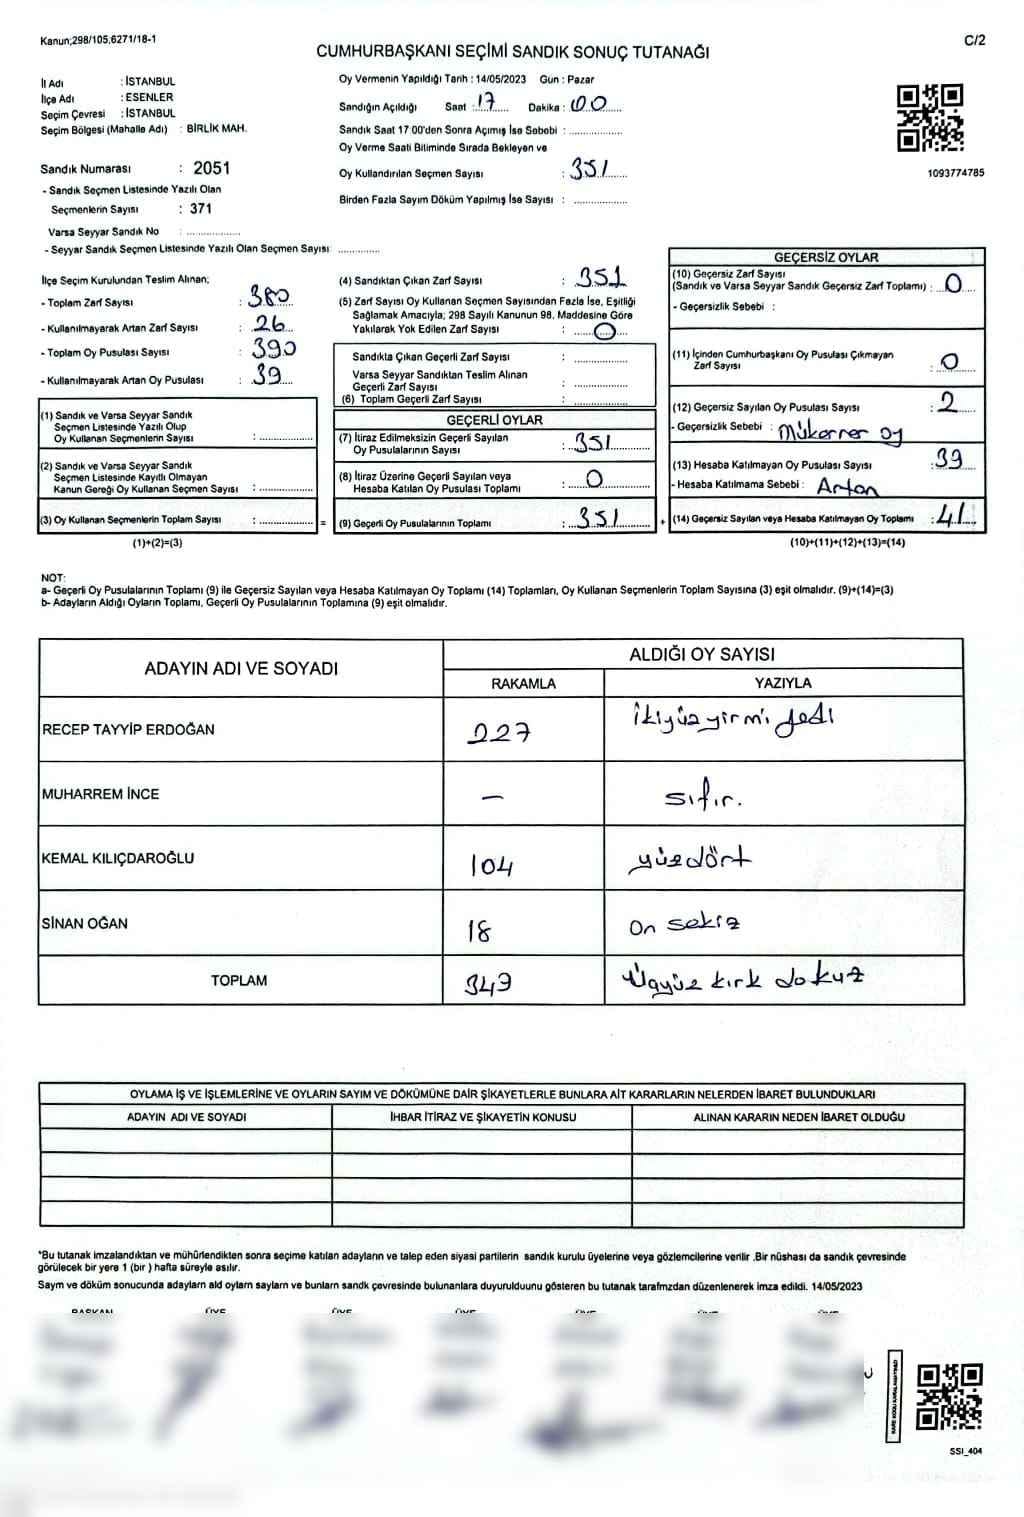 Kanun;298/105;6271/18-1
C/2
CUMHURBAŞKANI SEÇİMİ SANDIK SONUÇ TUTANAĞI
İl Adı : İSTANBUL
İlçe Adı : ESENLER
Seçim Çevresi : İSTANBUL
Seçim Bölgesi (Mahalle Adı) : BİRLİK MAH.
Sandık Numarası : 2051
- Sandık Seçmen Listesinde Yazılı Olan
Seçmenlerin Sayısı : 371
Varsa Seyyar Sandık No : ................
- Seyyar Sandık Seçmen Listesinde Yazılı Olan Seçmen Sayısı: ............
Oy Vermenin Yapıldığı Tarih : 14/05/2023 Gün : Pazar
Sandığın Açıldığı Saat : 17 Dakika : 00
Sandık Saat 17 00'den Sonra Açımış İse Sebebi : ................
Oy Verme Saati Bitiminde Sırada Bekleyen ve
Oy Kullandırılan Seçmen Sayısı : 351
Birden Fazla Sayım Döküm Yapılmış İse Sayısı : ................
1093774785
İlçe Seçim Kurulundan Teslim Alınan;
- Toplam Zarf Sayısı : 380
- Kullanılmayarak Artan Zarf Sayısı : 26
- Toplam Oy Pusulası Sayısı : 390
- Kullanılmayarak Artan Oy Pusulası : 39
(1) Sandık ve Varsa Seyyar Sandık
Seçmen Listesinde Yazılı Olup
Oy Kullanan Seçmenlerin Sayısı : ................
(2) Sandık ve Varsa Seyyar Sandık
Seçmen Listesinde Kayıtlı Olmayan
Kanun Gereği Oy Kullanan Seçmen Sayısı : ................
(3) Oy Kullanan Seçmenlerin Toplam Sayısı : ................ =
(1)+(2)=(3)
(4) Sandıktan Çıkan Zarf Sayısı : 351
(5) Zarf Sayısı Oy Kullanan Seçmen Sayısından Fazla İse, Eşitliği
Sağlamak Amacıyla; 298 Sayılı Kanunun 98. Maddesine Göre
Yakılarak Yok Edilen Zarf Sayısı : 0
Sandıkta Çıkan Geçerli Zarf Sayısı : ................
Varsa Seyyar Sandıktan Teslim Alınan
Geçerli Zarf Sayısı : ................
(6) Toplam Geçerli Zarf Sayısı : ................
GEÇERLİ OYLAR
(7) İtiraz Edilmeksizin Geçerli Sayılan
Oy Pusulalarının Sayısı : 351
(8) İtiraz Üzerine Geçerli Sayılan veya
Hesaba Katılan Oy Pusulası Toplamı : 0
(9) Geçerli Oy Pusulalarının Toplamı : 351 +
GEÇERSİZ OYLAR
(10) Geçersiz Zarf Sayısı
(Sandık ve Varsa Seyyar Sandık Geçersiz Zarf Toplamı) : 0
- Geçersizlik Sebebi :
(11) İçinden Cumhurbaşkanı Oy Pusulası Çıkmayan
Zarf Sayısı : 0
(12) Geçersiz Sayılan Oy Pusulası Sayısı : 2
- Geçersizlik Sebebi : Mükerrer oy
(13) Hesaba Katılmayan Oy Pusulası Sayısı : 39
- Hesaba Katılmama Sebebi : Artan
(14) Geçersiz Sayılan veya Hesaba Katılmayan Oy Toplamı : 41
(10)+(11)+(12)+(13)=(14)
NOT:
a- Geçerli Oy Pusulalarının Toplamı (9) ile Geçersiz Sayılan veya Hesaba Katılmayan Oy Toplamı (14) Toplamları, Oy Kullanan Seçmenlerin Toplam Sayısına (3) eşit olmalıdır. (9)+(14)=(3)
b- Adayların Aldığı Oyların Toplamı, Geçerli Oy Pusulalarının Toplamına (9) eşit olmalıdır.
ADAYIN ADI VE SOYADI ALDIĞI OY SAYISI
RAKAMLA YAZIYLA
RECEP TAYYİP ERDOĞAN 227 İkiyüzyirmi yedi
MUHARREM İNCE – sıfır.
KEMAL KILIÇDAROĞLU 104 yüzdört
SİNAN OĞAN 18 On sekiz
TOPLAM 349 Üçyüz kırk dokuz
OYLAMA İŞ VE İŞLEMLERİNE VE OYLARIN SAYIM VE DÖKÜMÜNE DAİR ŞİKAYETLERLE BUNLARA AİT KARARLARIN NELERDEN İBARET BULUNDUKLARI
ADAYIN ADI VE SOYADI İHBAR İTİRAZ VE ŞİKAYETİN KONUSU ALINAN KARARIN NEDEN İBARET OLDUĞU
"Bu tutanak imzalandıktan ve mühürlendikten sonra seçime katılan adayların ve talep eden siyasi partilerin sandık kurulu üyelerine veya gözlemcilerine verilir .Bir nüshası da sandık çevresinde
görülecek bir yere 1 (bir ) hafta süreyle asılır.
Sayım ve döküm sonucunda adayların ald oyların sayların ve bunların sandk çevresinde bulunanlara duyurulduunu gösteren bu tutanak tarafmzdan düzenlenerek imza edildi. 14/05/2023
BAŞKAN ÜYE ÜYE ÜYE ÜYE ÜYE ÜYE
SSI_404